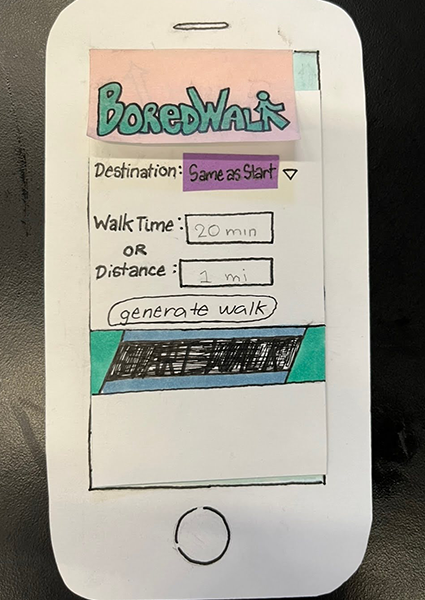 BoredWalk
Destination: Same as Start
Walk Time: 20 min
OR
Distance: 1 mi
generate walk